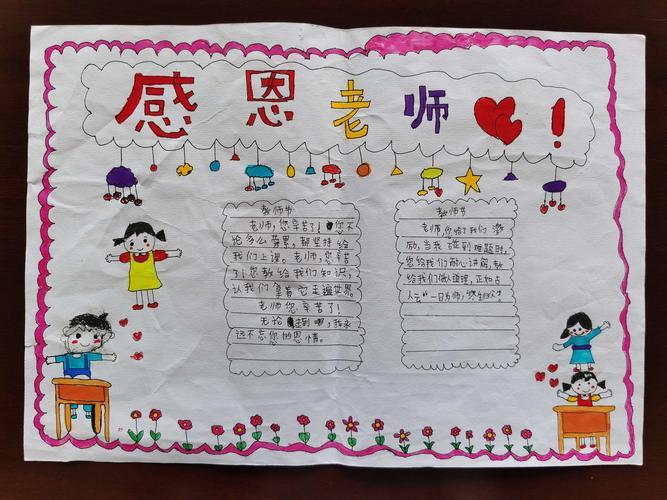 感恩老师！
教师节
老师，您辛苦了！您不
论多么苦累，都坚持给
我们上课。老师，您辛苦
了！您教给我们知识，
认我们拿着它走遍世界。
老师您辛苦了！
无论走到哪，我永
远不忘您的恩情。
教师节
老师，您给了我们激
励，当我碰到难题时，
您给我们耐心讲解，教
给我们做人道理，正如古
人云“一日为师，终生